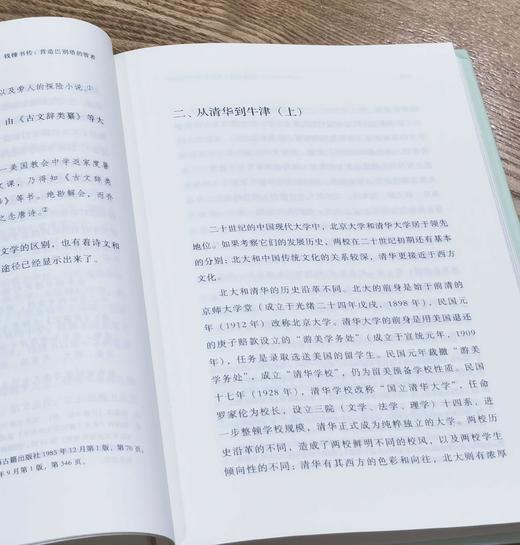 钱锺书传：营造巴别塔的智者
以及旁人的探险小说。①
由《古文辞类纂》等大
一美国教会中学返家度暑
文课，乃得知《古文辞类
》等书。绝勘解会，而乔
之念唐诗。②
文学的区别，也有着诗文和
途径已经显示出来了。
古籍出版社1985年12月第1版，第70页。
年9月第1版，第346页。
二、从清华到牛津（上）
二十世纪的中国现代大学中，北京大学和清华大学居于领先
地位。如果考察它们的发展历史，两校在二十世纪初期还有基本
的分别；北大和中国传统文化的关系较深，清华更接近于西方
文化。
北大和清华的历史沿革不同。北大的前身是始于前清的
京师大学堂（成立于光绪二十四年戊戌，1898年），民国元
年（1912年）改称北京大学。清华大学的前身是用美国退还
的庚子赔款设立的“游美学务处”（成立于宣统元年，1909
年），任务是录取选送美国的留学生。民国元年裁撤“游美
学务处”，成立“清华学校”，仍为留美预备学校性质。民国
十七年（1928年），清华学校改称“国立清华大学”，任命
罗家伦为校长，设立三院（文学、法学、理学）十四系，进
一步整顿学校规模，清华正式成为纯粹独立的大学。两校历
史沿革的不同，造成了两校鲜明不同的校风，以及两校学生
倾向性的不同：清华有其西方的色彩和向往，北大则有浓厚